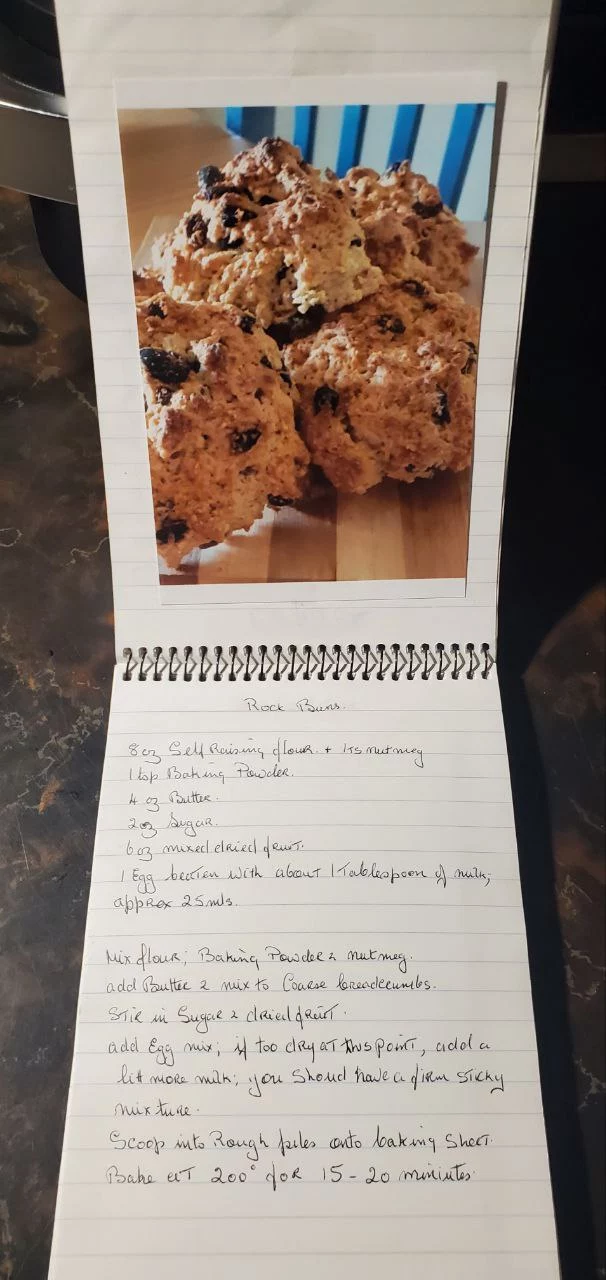 Rock Buns.
8oz Self Raising flour. + 1TS nutmeg
1 tsp Baking Powder.
4 oz Butter.
2oz Sugar.
6oz mixed dried fruit.
1 Egg beeten with about 1 Tablespoon of milk;
approx 25mls.
Mix flour; Baking Powder & nutmeg.
add Butter & mix to Coarse breadcrumbs.
Stir in Sugar & dried fruit.
add Egg mix; if too dry at this point, add a
bit more milk; you Shoud have a firm Sticky
mixture.
Scoop into Rough piles onto baking Sheet.
Bake at 200° for 15-20 miniutes.